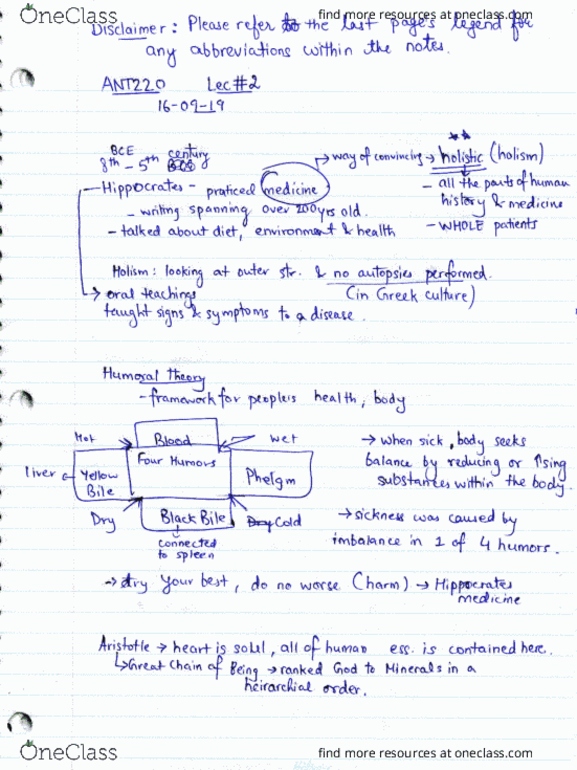 OneClass
find more resources at oneclass.com
Disclaimer: Please refer to the last page's legend for
any abbreviations within the notes.
ANT220 Lec#2
16-09-19
BCE
8th - 5th century
Hippocrates - praticed medicine
way of convincing → holistic (holism)
- all the parts of human
history & medicine
- WHOLE patients
- writing spanning over 200yrs old.
- talked about diet, environment & health
Holism: looking at outer str. & no autopsies performed.
(in Greek culture)
→ oral teachings
taught signs & symptoms to a disease.
Humoral Theory
- framework for people's health, body
Hot
Blood
wet
Four Humors
liver
Yellow
Bile
Phelgm
Dry
Black Bile
Dry Cold
connected
to spleen
→ when sick, body seeks
balance by reducing or ↑sing
substances within the body.
→ sickness was caused by
imbalance in 1 of 4 humors.
→ try your best, do no worse (harm) → Hippocrates
medicine
Aristotle → heart is soul, all of human ess. is contained here.
↳ Great Chain of Being → ranked God to Minerals in a
heirarchial order.
OneClass
find more resources at oneclass.com